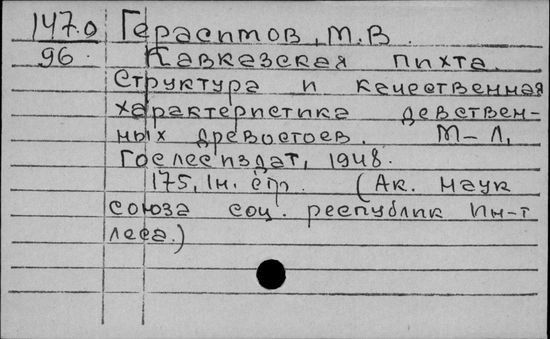 147.0 Герасимов, М.В.
96. Кавказская пихта.
Структура и качественная
характеристика девствен-
ных древостоев. М-Л,
Гослесиздат, 1948.
175, 1н. стр. (Ак. наук
союза соц. республик Ин-т
леса.)